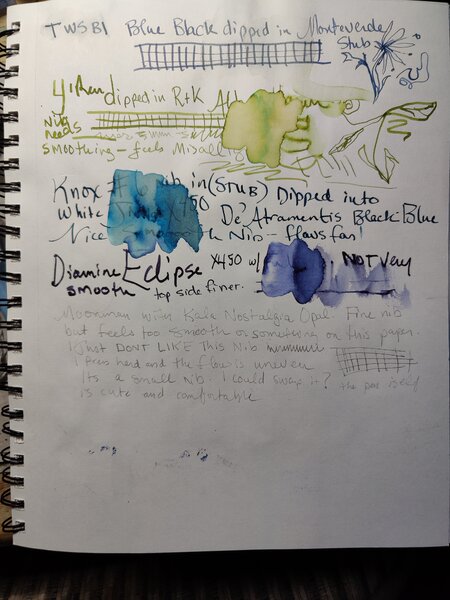 TWSBI Blue Black dipped in Monteverde
Stub
dipped in R+K
nib
needs
smoothing - feels Misalign
Knox # nib in (STUB) Dipped into
White X450 De Atramentis Black Blue
Nice Nib - flows fast!
Diamine Eclipse X450 w/ NOT Very
smooth top side finer.
Moonman with Kala Nostalgia Opal. Fine nib
but feels too smooth or something on this paper.
I just DONT LIKE This Nib
I press hard and the flow is uneven
Its a small nib. I could swap it? the pen itself
is cute and comfortable